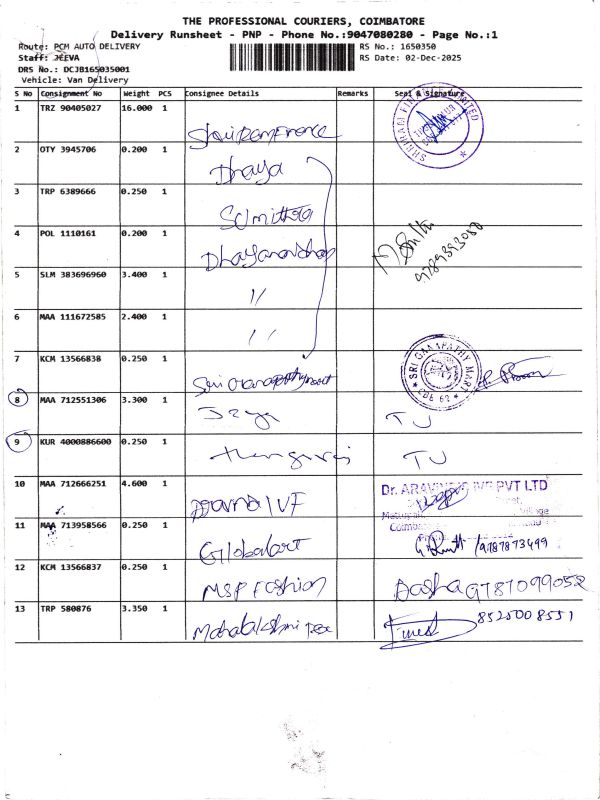 THE PROFESSIONAL COURIERS, COIMBATORE
Delivery Runsheet - PNP - Phone No.:9047080280 - Page No.:1
Route: PCM AUTO DELIVERY
Staff: JEEVA
DRS No.: DCJB165035001
Vehicle: Van Delivery
RS No.: 1650350
RS Date: 02-Dec-2025
S No Consignment No Weight PCS Consignee Details Remarks Seal & Signature
1 TRZ 90405027 16.000 1
2 OTY 3945706 0.200 1 Dhaya
3 TRP 6389666 0.250 1 Sumithra
4 POL 1110161 0.200 1
5 SLM 383696960 3.400 1 //
6 MAA 111672585 2.400 1 //
7 KCM 13566838 0.250 1 SRI GANAPATHY MART
8 MAA 712551306 3.300 1 Jeya TJ
9 KUR 4000886600 0.250 1 TJ
10 MAA 712666251 4.600 1 IVF Dr. ARAVIND'S IVF PVT LTD
11 MAA 713958566 0.250 1 Globalart 9787873499
12 KCM 13566837 0.250 1 MSP Fashion Basha 9787099052
13 TRP 580876 3.350 1 Mahalakshmi Tex 8525008551